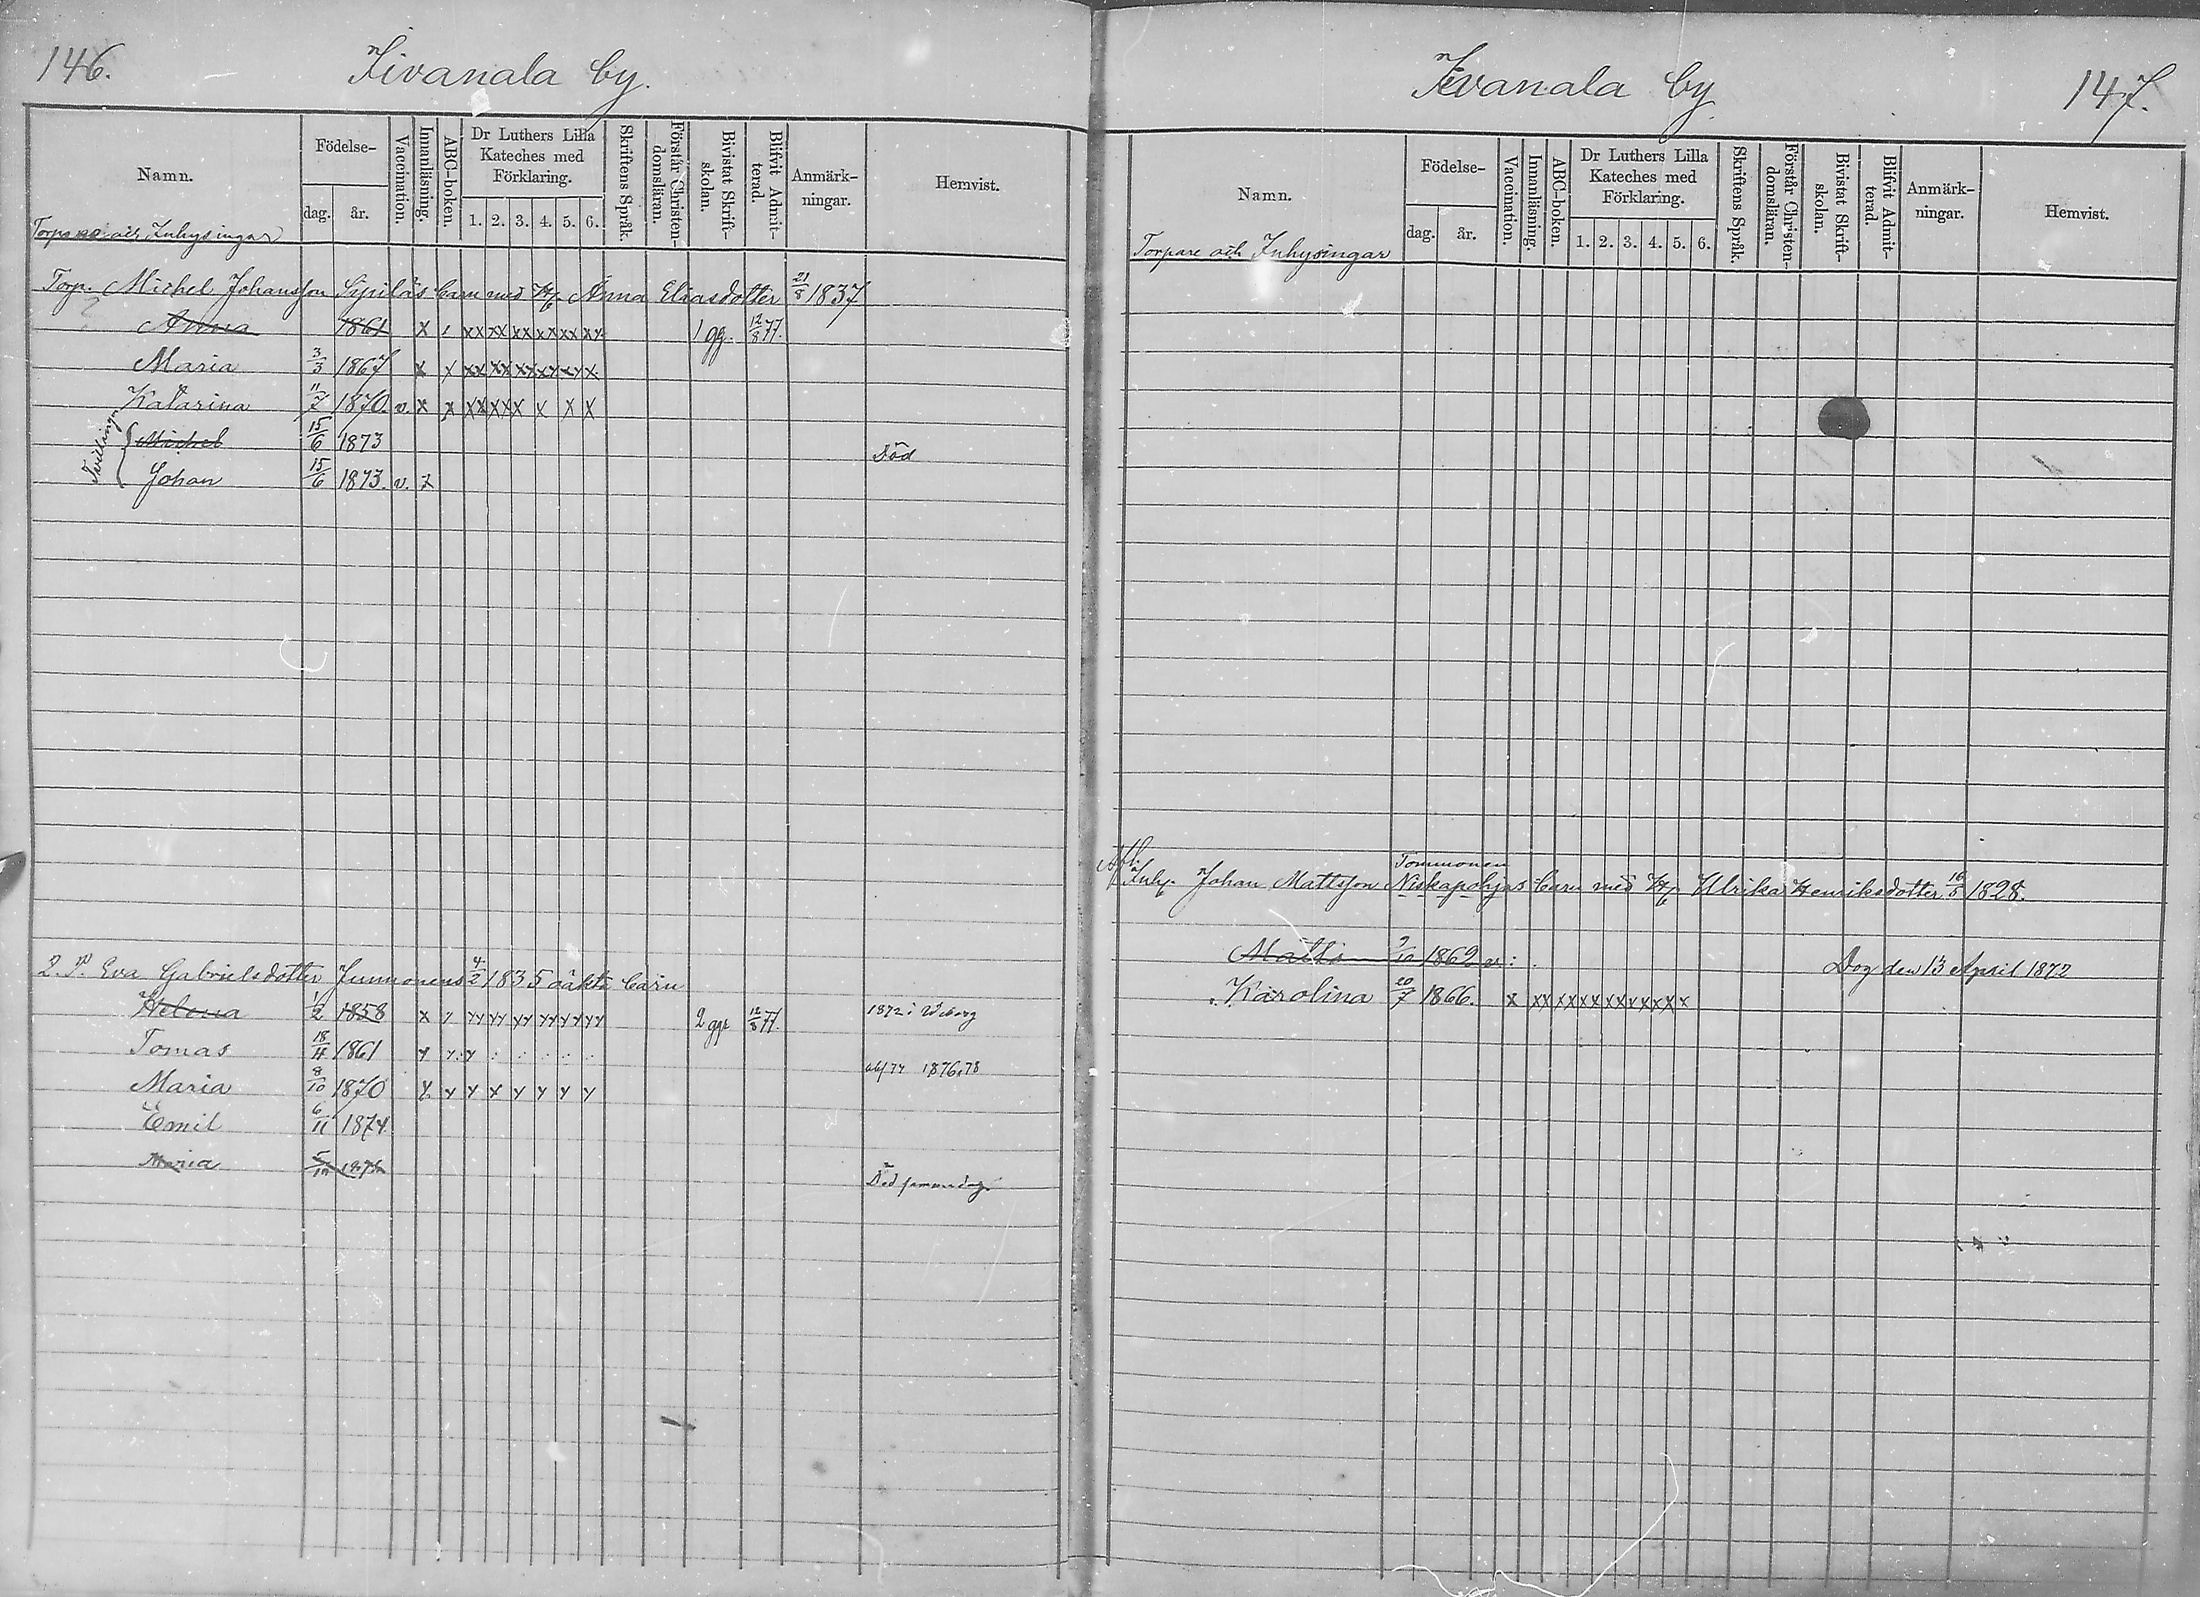 146.
Kivanala by.
Namn.
Födelse-
dag.
år.
Vaccination.
Innanläsning.
ABC-boken.
Dr Luthers Lilla
Kateches med
Förklaring.
1. 2. 3. 4. 5. 6.
Skriftens Språk.
Förstår Christen-
domsläran.
Bivistat Skrift-
skolan.
Blifvit Admit-
terad.
Anmärk-
ningar.
Hemvist.
Torpare och Inhysingar
Torp. Michel Johansson Sipiläs barn med H. Anna Eliasdotter 21/8 1837
Anna 1861 x / xx xx xx xx xx xx 1 gg. 12/8 77.
Maria 3/3 1867 x x xx xx xx xx xx x
Katarina 11/7 1870. v. x x xx xx x x x x
Tvillingar
Michel 15/6 1873 Död
Johan 15/6 1873. v. x
2. P. Eva Gabrielsdotter Junnonens 4/2 1835 oäkta barn
Helena 1/2 1858 x y yy yy yy yy yy yy 2 ggr 12/8 77. 1872 i Wiborg
Tomas 18/11 1861 y y. y 1876, 78
Maria 8/10 1870 y y y x y y y y
Emil 6/11 1874
Maria 5/10 1875 Död samma dag.
Kivanala by
147.
Namn.
Födelse-
dag.
år.
Vaccination.
Innanläsning.
ABC-boken.
Dr Luthers Lilla
Kateches med
Förklaring.
1. 2. 3. 4. 5. 6.
Skriftens Språk.
Förstår Christen-
domsläran.
Bivistat Skrift-
skolan.
Blifvit Admit-
terad.
Anmärk-
ningar.
Hemvist.
Torpare och Inhysingar
Tommonen
Afl. Inh. Johan Mattsson Niskapohjas barn med H. Ulrika Henriksdotter 16/5 1828.
Matts 9/10 1862 v. Dog den 13 April 1872
Karolina 20/7 1866. x xx xx xx xx xx xx x